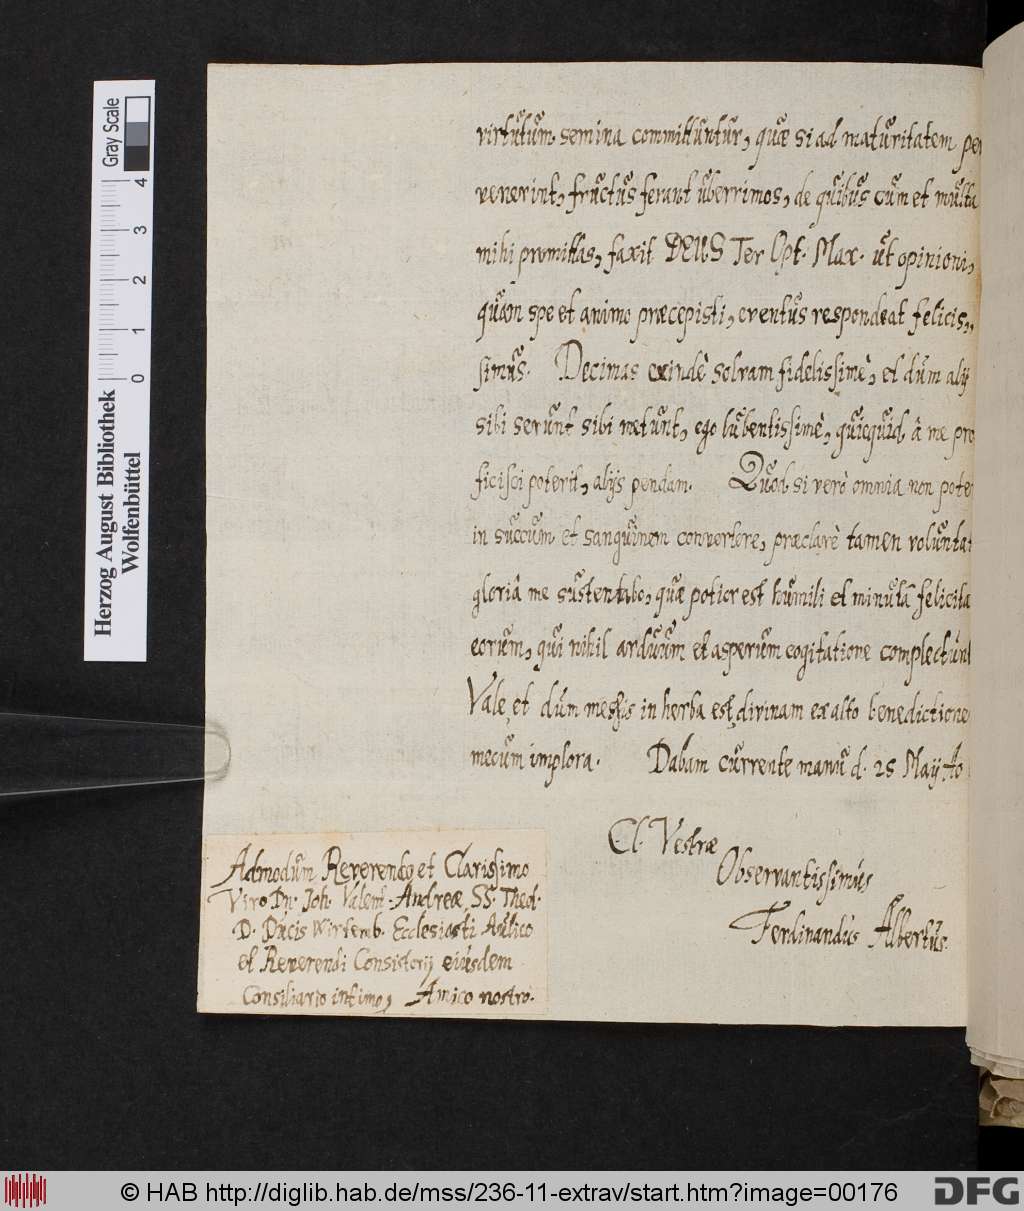 virtutum semina committuntur, quæ si ad maturitatem per
venerint, fructus ferant uberrimos, de quibus cum et multa
mihi promittas, faxit DEUS Ter Opt. Max. ut opinioni,
quam spe et animo præcepisti, eventus respondeat felicis,,
simus. Decimas exindè solvam fidelissimè, et dum alij
sibi serunt sibi metunt, ego lubentissimè, quicquid â me pro
ficisci poterit, alijs pendam. Quod si verò omnia non poter
in succum et sanguinem convertere, præclarè tamen voluntat
gloriâ me sustentabo, quæ potior est humili et minutâ felicita
eorum, qui nihil arduum et asperum cogitatione complectunt
Vale, et dum messis in herba est, divinam ex alto benedictione
mecum implora. Dabam currente manu d. 25 Maij Ao
Cl. Vestræ
Observantissimus
Ferdinandus Albertus.
Admodum Reverendo et Clarissimo
Viro Dn. Joh. Valent. Andreæ SS. Theol.
D. Ducis Wirtemb. Ecclesiasti Aulico
et Reverendi Consistorij eiusdem
Consiliario intimo, Amico nostro.
Herzog August Bibliothek
Wolfenbüttel
0 1 2 3 4
Gray Scale
© HAB http://diglib.hab.de/mss/236-11-extrav/start.htm?image=00176
DFG